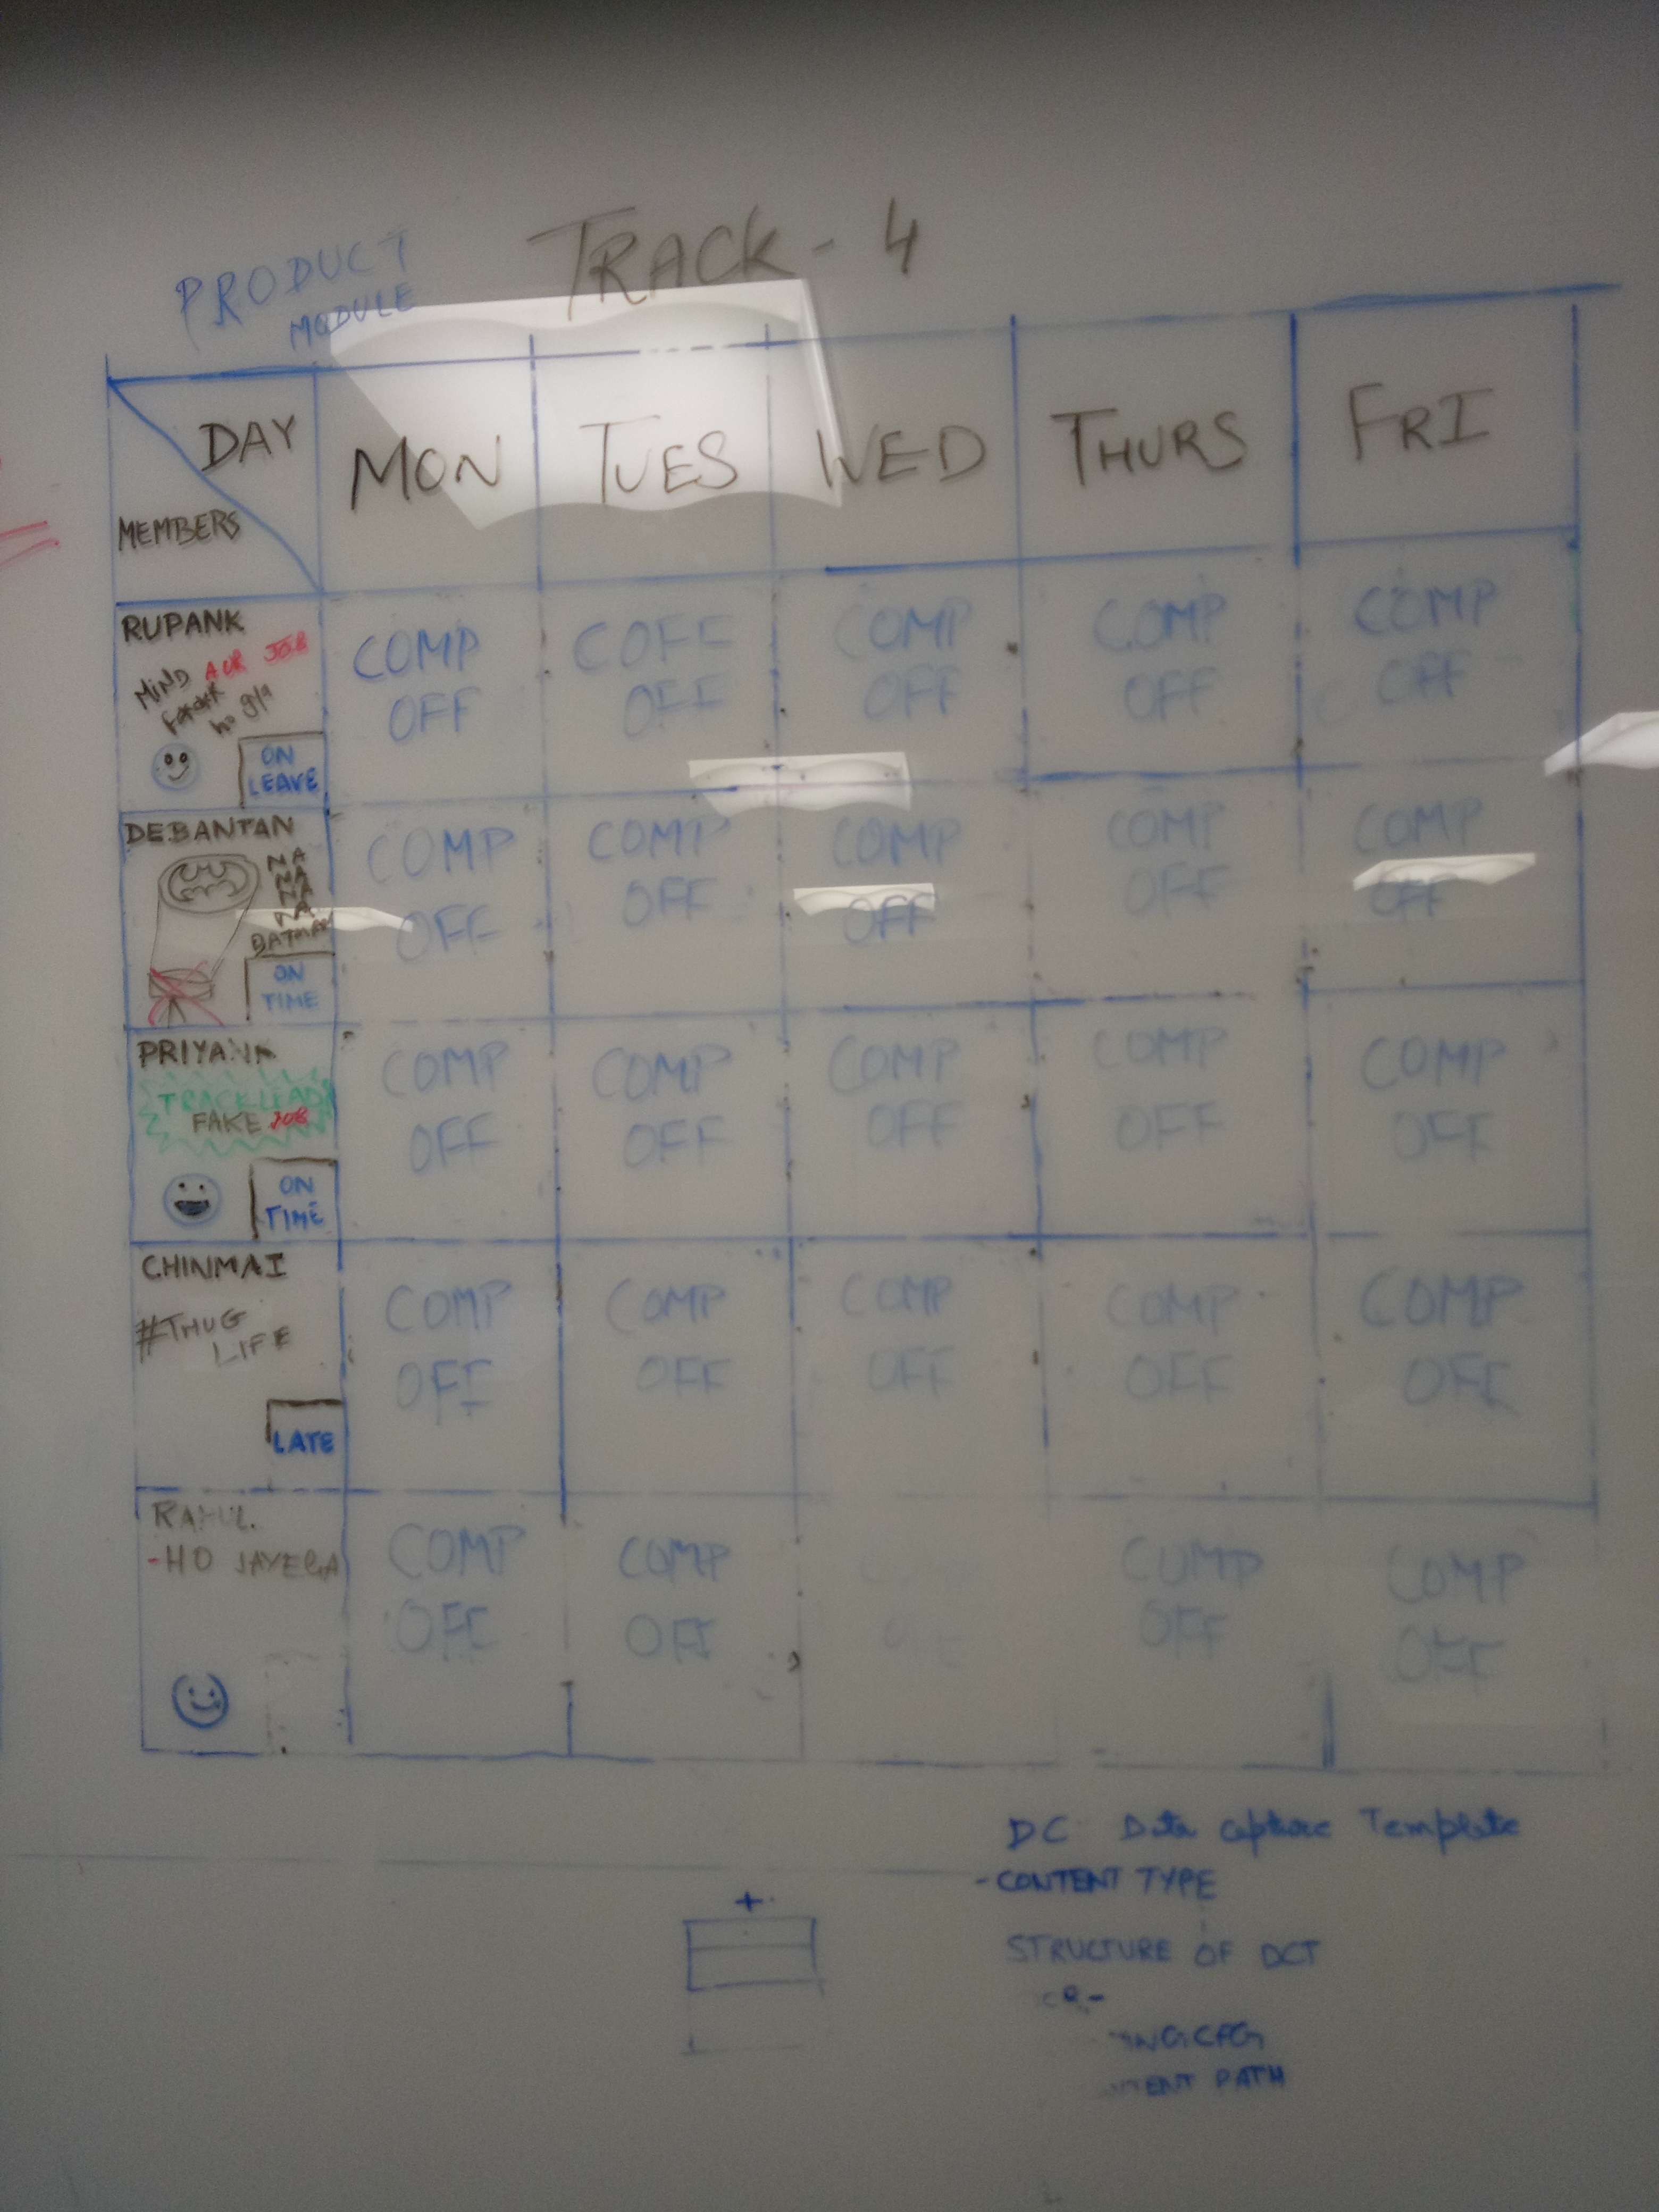 TRACK - 4
PRODUCT
MODULE
DAY
MEMBERS
MON
TUES
WED
THURS
FRI
RUPANK
MIND AUR JOB
ho gya
ON
LEAVE
COMP
OFF
COFF
OFF
COMP
OFF
COMP
OFF
COMP
OFF
DEBANTAN
NA
NA
NA
NA
BATMAN
ON
TIME
COMP
OFF
COMP
OFF
COMP
OFF
COMP
OFF
COMP
OFF
PRIYANK
TRACK LEAD
FAKE JOB
ON
TIME
COMP
OFF
COMP
OFF
COMP
OFF
COMP
OFF
COMP
OFF
CHINMAI
#THUG
LIFE
LATE
COMP
OFF
COMP
OFF
COMP
OFF
COMP
OFF
COMP
OFF
RAHUL.
-HO JAYEGA
COMP
OFF
COMP
OFF
COMP
OFF
COMP
OFF
DC Data Capture Template
- CONTENT TYPE
STRUCTURE OF DCT
PATH